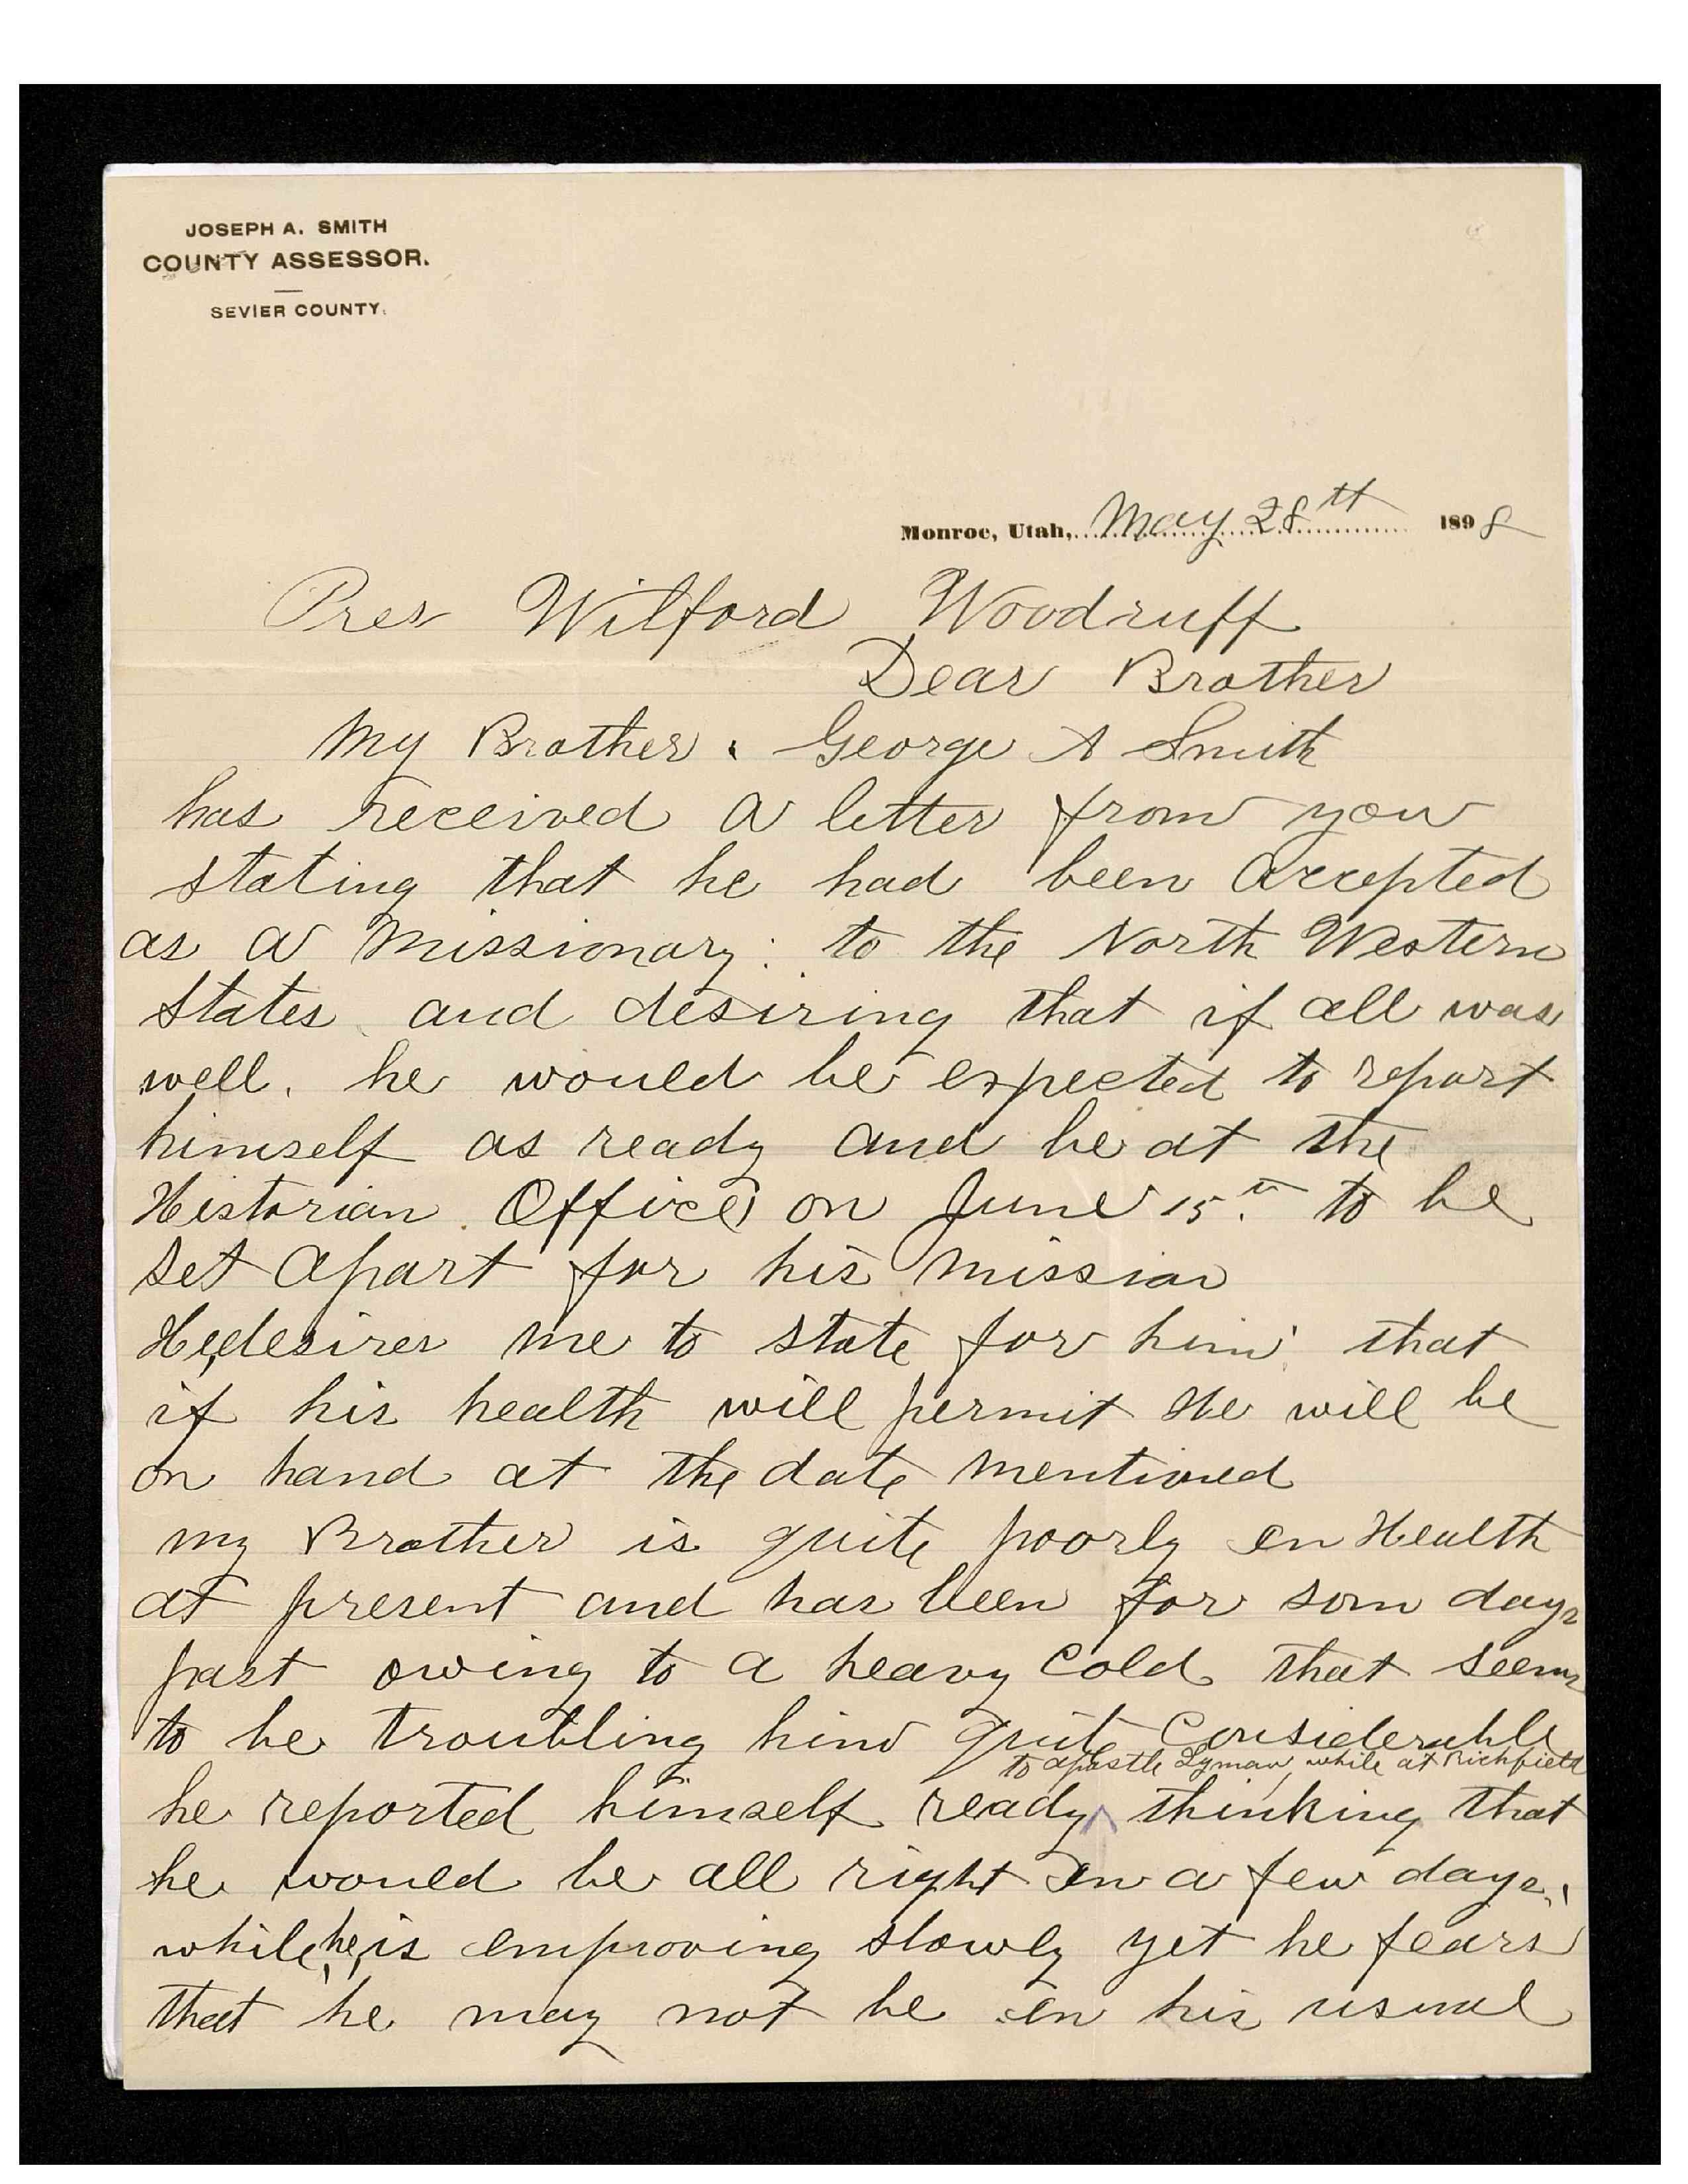 JOSEPH A. SMITH
COUNTY ASSESSOR.
SEVIER COUNTY.
Monroe, Utah, May 28th 1898
Pres Wilford Woodruff
Dear Brother
My Brother. George A Smith
has received a letter from you
stating that he had been accepted
as a Missionary: to the North Western
States and desiring that if all was
well. he would be expected to report
himself as ready and be at the
Historian Office on June 15th to be
set apart for his mission
He desires me to state for him that
if his health will permit He will be
on hand at the date mentioned
my Brother is quite poorly in Health
at present and has been for som days
past owing to a heavy Cold that seems
to be troubling him quite Considerable
to apostle Lyman, while at Richfield
he reported himself ready ^ thinking that
he would be all right in a few days.
while he is improving slowly yet he fears
that he may not be in his usual